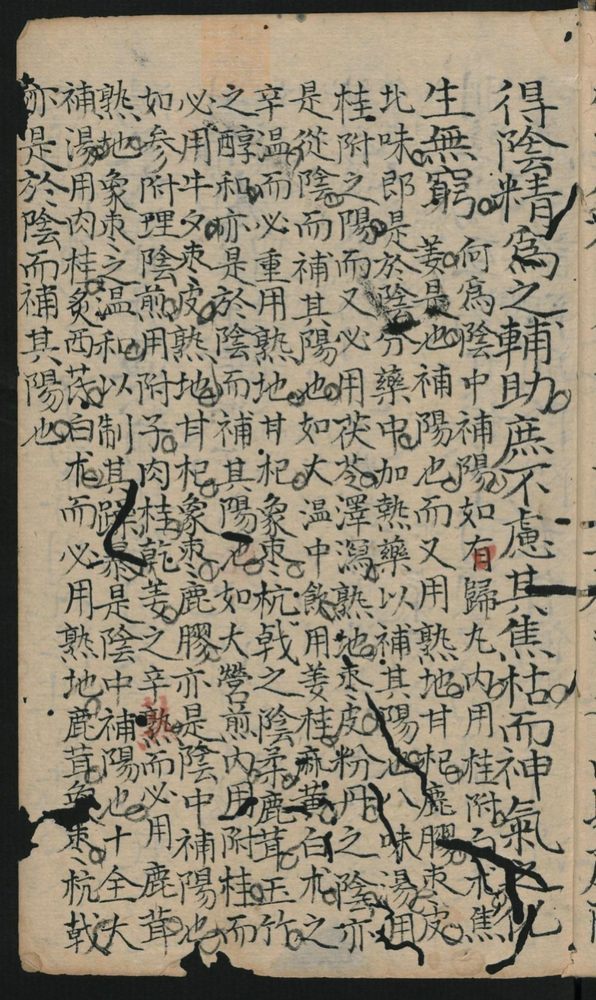 得陰精為之輔助庶不慮其焦枯而神氣之化
生無窮
何為陰中補陽如有歸丸內用桂附白朮焦
姜是也補陽也而又用熟地甘杞鹿膠棗皮
北味即是於陰分藥中加熱藥以補其陽也八味湯用
桂附之陽而又必用茯苓澤瀉熟地棗皮粉丹之陰亦
是從陰而補其陽也如大温中飲用姜桂麻黃白朮之
辛温而必重用熟地甘杞象棗杭戟之陰柔鹿茸玉竹
之醇和亦是於陰而補其陽也如大營煎內用附桂而
必用牛夕棗皮熟地甘杞象棗鹿膠亦是陰中補陽也
如参附理陰煎用附子肉桂乾姜之辛熱而必用鹿茸
熟地象棗之温和以制其躁暴是陰中補陽也十全大
補湯用肉桂炙西芪白朮而必用熟地鹿茸象棗杭戟
亦是於陰而補其陽也